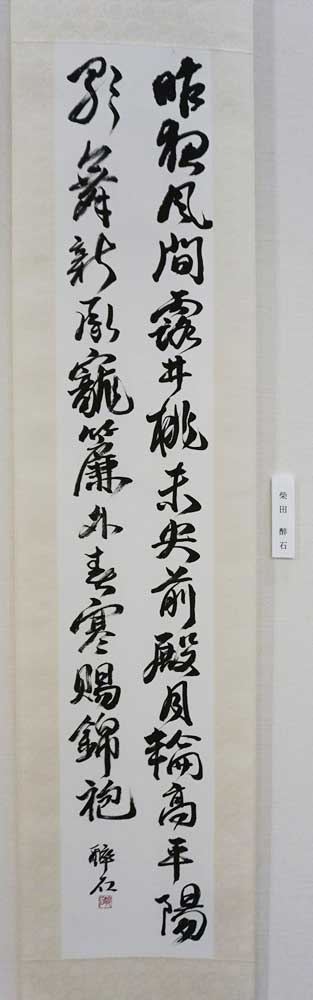 昨夜風開露井桃未央前殿月輪高平陽
歌舞新承寵簾外春寒賜錦袍
酔石
柴田 酔石